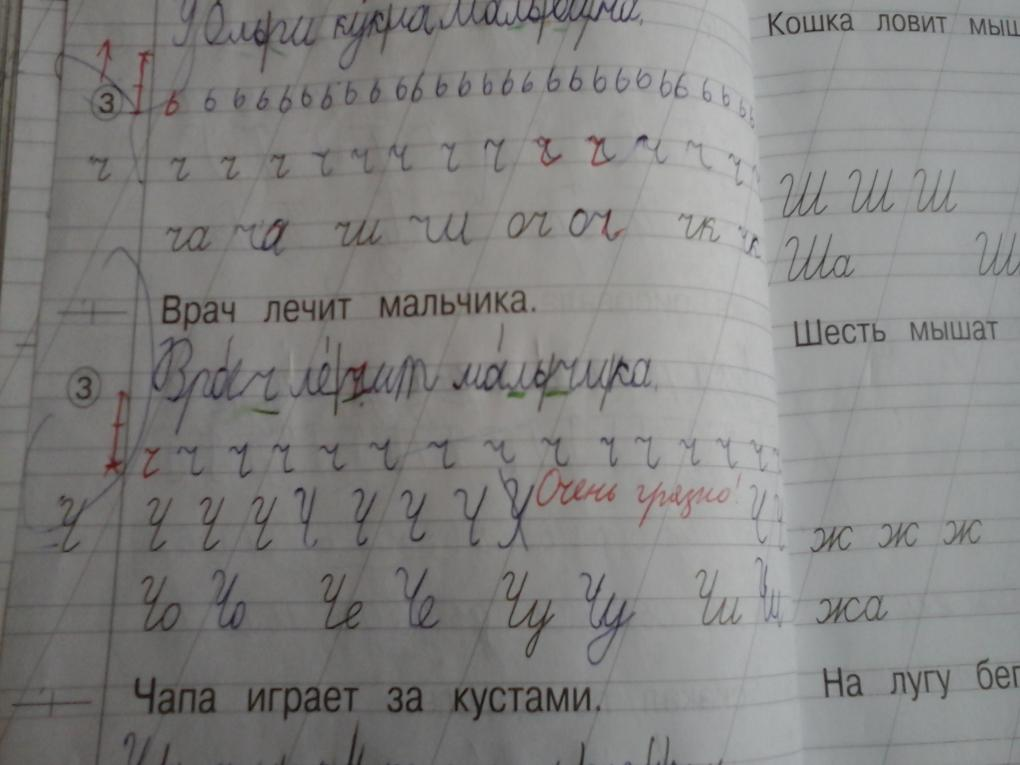 У Ольги кукла Мальвина.
3 ь ь ь ь ь ь ь ь ь ь ь ь ь ь ь ь ь ь ь ь ь ь ь ь ь
ч ч ч ч ч ч ч ч ч ч ч ч ч ч
ча ча чи чи оч оч чк чк
Врач лечит мальчика.
3 Врач лечит мальчика.
ч ч ч ч ч ч ч ч ч ч ч ч ч ч
Ч Ч Ч Ч Ч Ч Ч Ч Ч Ч Очень грязно! Ч Ч
Чо Чо Че Че Чу Чу Чи Чи
Чапа играет за кустами.
Кошка ловит
Ш Ш Ш
Ша Ш
Шесть мышат
ж ж ж
жа
На лугу